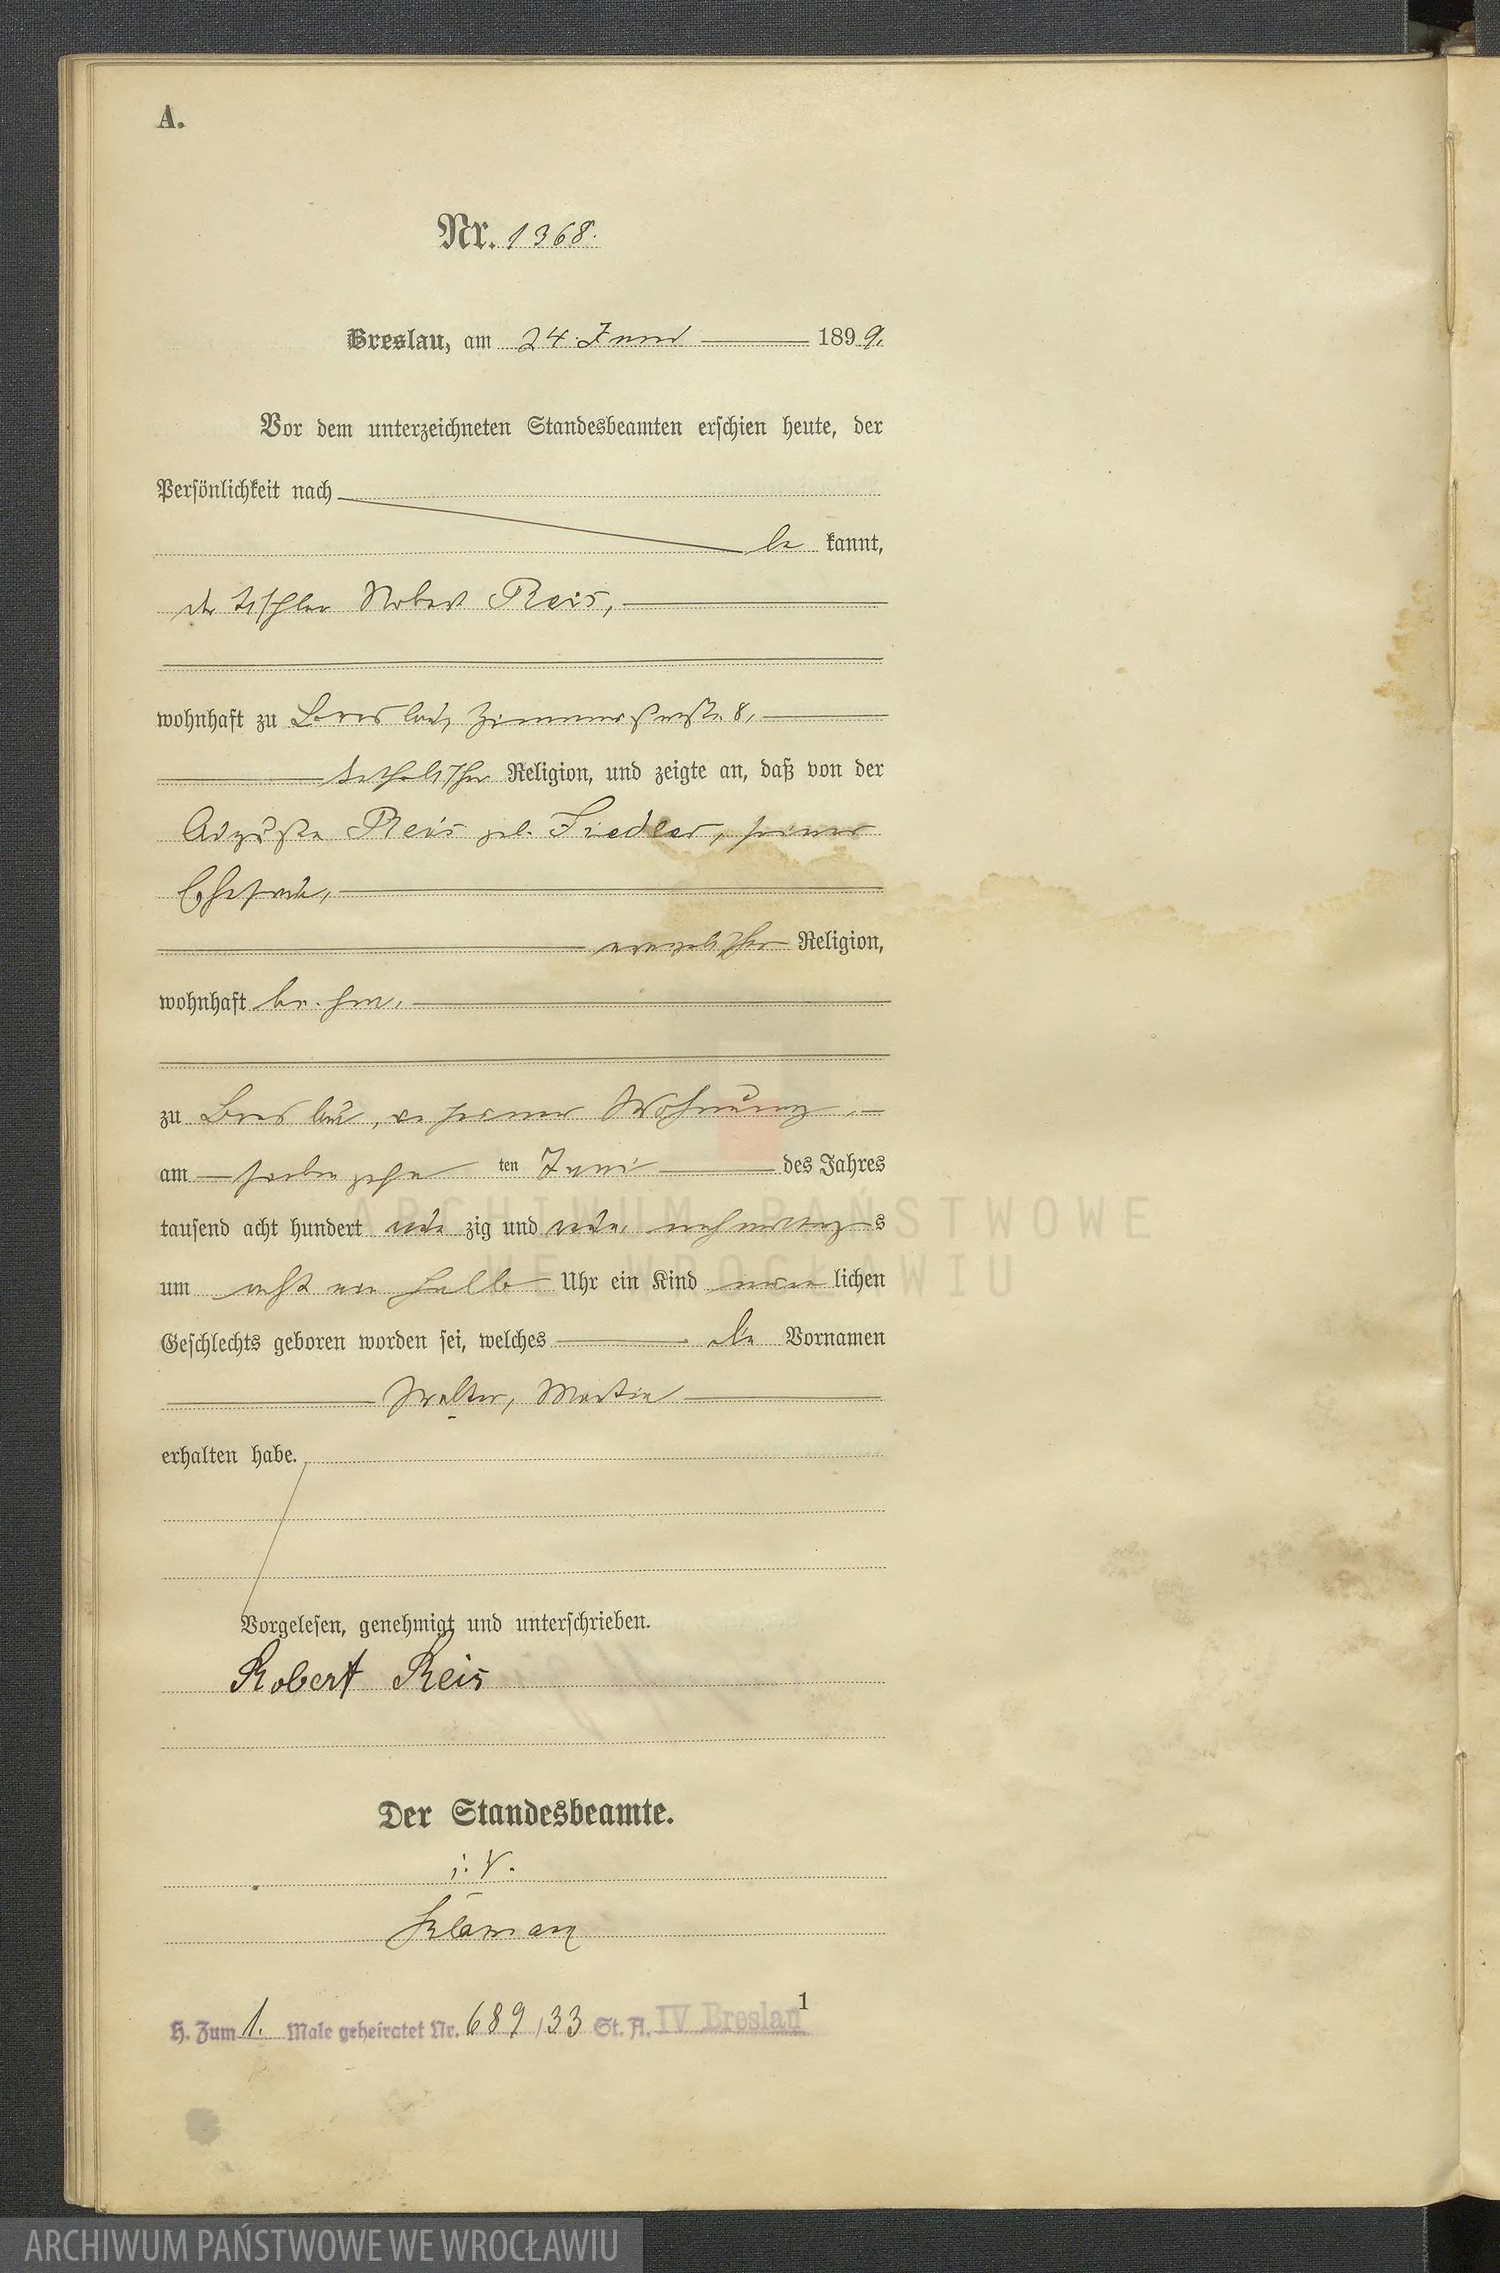 A.
Nr. 1368.
Breslau, am 24. Juni 1899.
Vor dem unterzeichneten Standesbeamten erschien heute, der
Persönlichkeit nach
be kannt,
der Tischler Robert Reis,
wohnhaft zu Breslau, Zimmerstraße 8,
katholischer Religion, und zeigte an, daß von der
Auguste Reis geb. Fiedler, seiner
Ehefrau,
evangelischer Religion,
wohnhaft bei ihm,
zu Breslau, in seiner Wohnung,
am siebenzehn ten Juni des Jahres
tausend acht hundert neun zig und neun, nachmittags
um acht ein halb Uhr ein Kind männ lichen
Geschlechts geboren worden sei, welches die Vornamen
Walter, Martin
erhalten habe.
Vorgelesen, genehmigt und unterschrieben.
Robert Reis
Der Standesbeamte.
i. V.
H. Zum 1. Male geheiratet Nr. 689/33 St. A. IV Breslau
1
ARCHIWUM PAŃSTWOWE
WE WROCŁAWIU
ARCHIWUM PAŃSTWOWE WE WROCŁAWIU